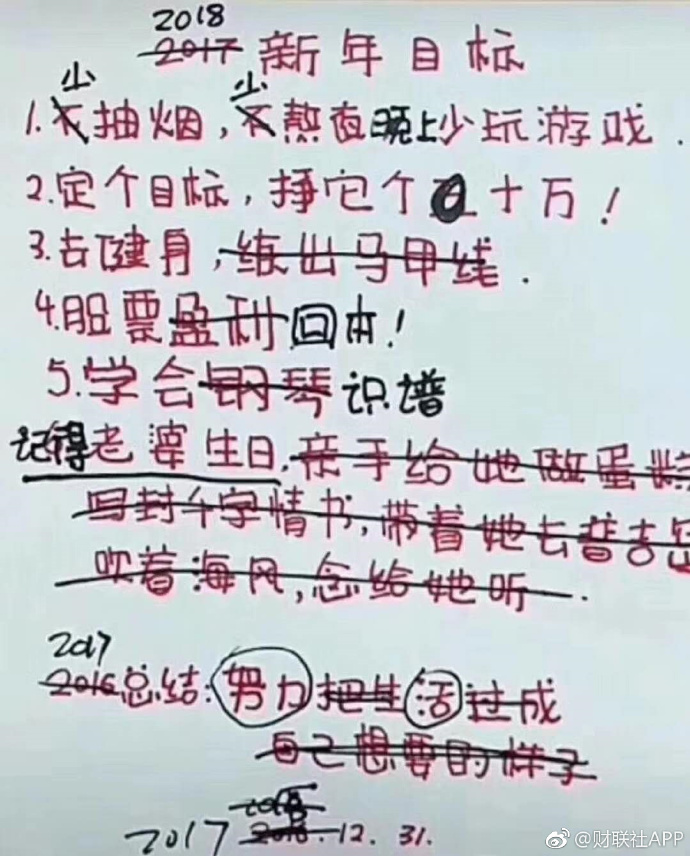 2018
2017 新年目标
少 少
1.不抽烟，不熬夜晚上少玩游戏.
2.定个目标，挣它个 十万！
3.去健身，练出马甲线.
4.股票盈利回本！
5.学会钢琴识谱
记得老婆生日.亲手给她做蛋糕
写封千字情书，带着她去普吉岛
吹着海风，念给她听.
2017
2016总结：努力把生活过成
自己想要的样子
2017 2016.12.31.
@财联社APP